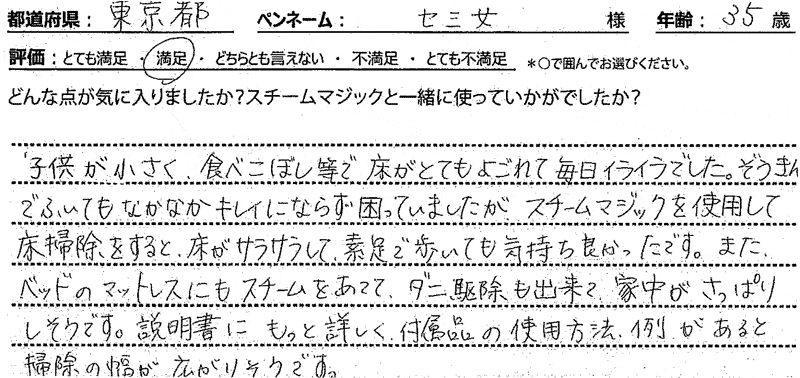 都道府県： 東京都 ペンネーム： セミ女 様 年齢： 35 歳
評価：とても満足 ・ 満足 ・ どちらとも言えない ・ 不満足 ・ とても不満足 ＊○で囲んでお選びください。
どんな点が気に入りましたか？スチームマジックと一緒に使っていかがでしたか？
子供が小さく、食べこぼし等で床がとてもよごれて毎日イライラでした。ぞうきん
でふいてもなかなかキレイにならず困っていましたが、スチームマジックを使用して
床掃除をすると、床がサラサラして、素足で歩いても気持ち良かったです。また、
ベッドのマットレスにもスチームをあてて、ダニ駆除も出来て、家中がさっぱり
しそうです。説明書にもっと詳しく、付属品の使用方法、例があると
掃除の幅が広がりそうです。